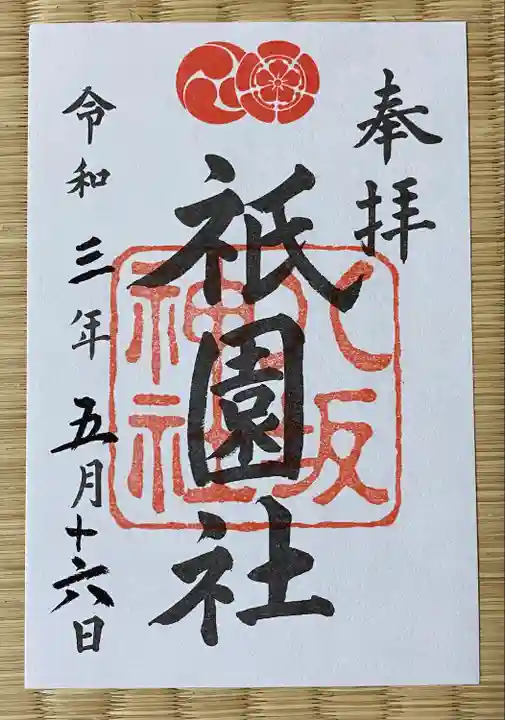 奉拝
八坂
神社
祇園社
令和三年五月十六日